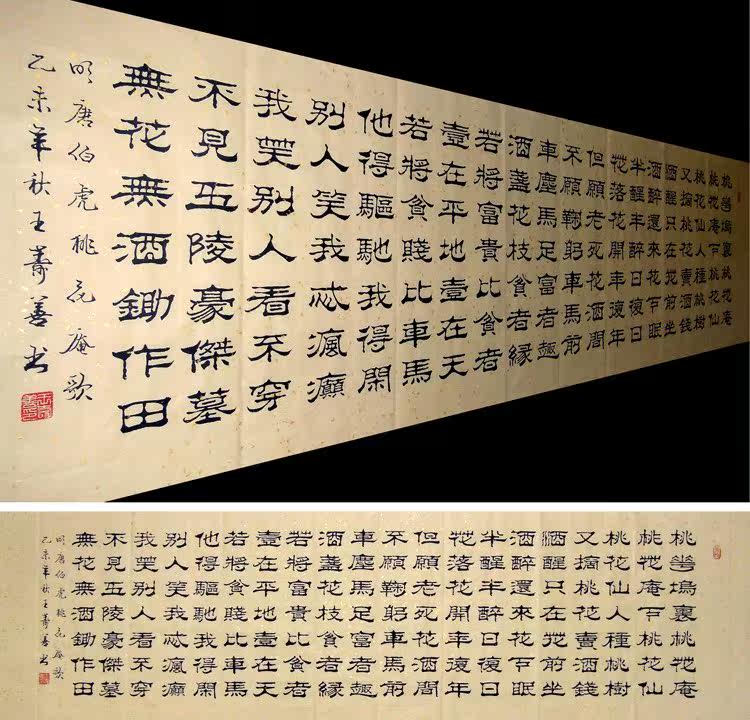 桃華塢裏桃花庵
桃花庵下桃花仙
桃花仙人種桃樹
又摘桃花賣酒錢
酒醒只在花前坐
酒醉還來花下眠
半醒半醉日復日
花落花開年復年
但願老死花酒間
不願鞠躬車馬前
車塵馬足富者趣
酒盞花枝貧者緣
若將富貴比貧者
壹在平地壹在天
若將貧賤比車馬
他得驅馳我得閑
別人笑我忒瘋癲
我笑別人看不穿
不見五陵豪傑墓
無花無酒鋤作田
明唐伯虎桃花庵歌
乙未年秋王壽善書
桃華塢裏桃花庵
桃花庵下桃花仙
桃花仙人種桃樹
又摘桃花賣酒錢
酒醒只在花前坐
酒醉還來花下眠
半醒半醉日復日
花落花開年復年
但願老死花酒間
不願鞠躬車馬前
車塵馬足富者趣
酒盞花枝貧者緣
若將富貴比貧者
壹在平地壹在天
若將貧賤比車馬
他得驅馳我得閑
別人笑我忒瘋癲
我笑別人看不穿
不見五陵豪傑墓
無花無酒鋤作田
明唐伯虎桃花庵歌
乙未年秋王壽善書